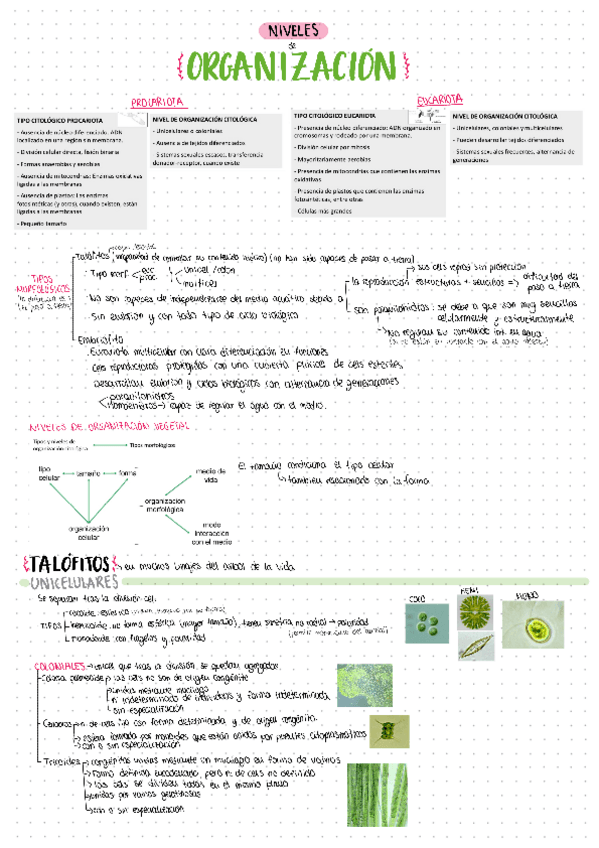 NIVELES
de
{ORGANIZACIÓN}
PROCARIOTA
TIPO CITOLÓGICO PROCARIOTA
- Ausencia de núcleo diferenciado. ADN
localizado en una región sin membrana.
- División celular directa, fisión binaria
- Formas anaerobias y aerobias
- Ausencia de mitocondrias: Enzimas oxidativas
ligadas a las membranas
- Ausencia de plastos: Las enzimas
fotosintéticas (y otros), cuando existen, están
ligadas a las membranas
- Pequeño tamaño
NIVEL DE ORGANIZACIÓN CITOLÓGICA
- Unicelulares o coloniales
- Ausencia de tejidos diferenciados
- Sistemas sexuales escasos, transferencia
donador-receptor, cuando existe
EUCARIOTA
TIPO CITOLÓGICO EUCARIOTA
- Presencia de núcleo diferenciado: ADN organizado en
cromosomas y rodeado por una membrana.
- División celular por mitosis
- Mayoritariamente aerobias
- Presencia de mitocondrias que contienen las enzimas
oxidativas
- Presencia de plastos que contienen las enzimas
fotosintéticas, entre otras
- Células más grandes
NIVEL DE ORGANIZACIÓN CITOLÓGICA
- Unicelulares, coloniales y multicelulares
- Pueden desarrollar tejidos diferenciados
- Sistemas sexuales frecuentes, alternancia de
generaciones
TIPOS
MORFOLÓGICOS
Talófitos
(no han sido capaces de pasar a tierra)
Tipo morf.
euc
proc
unicel / colon
No son capaces de independizarse del medio acuático debido a
la reproducción estructuras + sencillas => dificultad del
paso a tierra
sus cels reprod sin protección
son poiquilohidros: se debe a que son muy sencillas
celularmente y estructuralmente
No regulan su contenido int. en agua
Sin embrión y con todo tipo de ciclo biológico
Embriofito
Eucariota multicelular con clara diferenciación en funciones
cels reproductoras protegidas con una cubierta pluricel de cels estériles
Desarrollan embrión y ciclos biológicos con alternancia de generaciones
poiquilohidros
homeohidros → capaz de regular el agua con el medio.
NIVELES DE ORGANIZACIÓN VEGETAL
Tipos y niveles de
organización citológica
Tipos morfológicos
tipo
celular
tamaño
forma
organización
celular
organización
morfológica
medio de
vida
modo
interacción
con el medio
El tamaño condiciona el tipo celular
también relacionado con la forma
{TALÓFITOS} → en muchos linajes del árbol de la vida
UNICELULARES
Se separan tras la división cel.
TIPOS
(mayor tamaño), tienen simetría no radial → polaridad
monadoide con flagelos y polaridad
COCO
COLONIALES → unicel que tras la división se quedan agregadas.
las cels no son de origen congénito
unidas mediante mucílago
nº indeterminado de individuos y forma indeterminada
sin especialización
nº de cels fijo con forma determinada y de origen congénito.
con o sin especialización
congénitos unidas mediante un mucílago en forma de vainas
forma definida encadenada, pero nº de cels no definido
las cels se dividen todas en el mismo plano
unidas por vainas gelatinosas
con o sin especialización